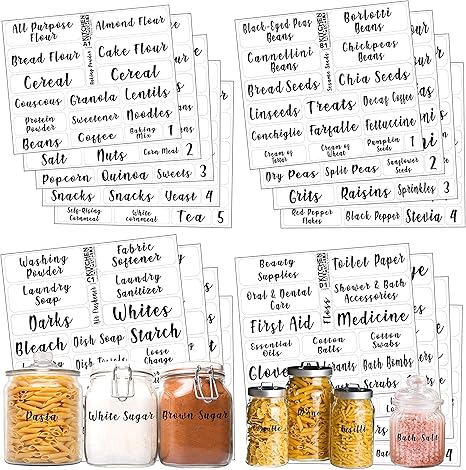 All Purpose Flour
Almond Flour
Bread Flour
Cake Flour
Cereal
Cereal
Couscous Granola Lentils
Protein Powder
Sweetener Noodles
Beans Coffee Baking Mix 1
Salt Nuts Corn Meal 2
Popcorn Quinoa Sweets 3
Snacks Snacks Yeast 4
Self-Rising Cornmeal
White cornmeal
Tea 5
KITCHEN
Black-Eyed Peas Beans
Borlotti Beans
Cannellini Beans
Chickpeas Beans
Sesame Seeds
Bread Seeds Chia Seeds
Linseeds Treats Decaf Coffee
Conchiglie Farfalle Fettuccine
Cream of Tartar
Cream of Wheat
Pumpkin Seeds 1
Dry Peas Split Peas Sunflower Seeds 2
Grits Raisins Sprinkles 3
Red Pepper Flakes
Black Pepper Stevia 4
KITCHEN
Washing Powder
Fabric Softener
Laundry Soap
Laundry Sanitizer
Air Freshener
Darks Whites
Bleach Dish Soap Starch
Dish
Loose Change
KITCHEN
Pasta
White Sugar
Brown Sugar
Beauty Supplies
Toilet Paper
Oral & Dental Care
Shower & Bath Accessories
Floss
First Aid Medicine
Essential Oils
Cotton Balls
Cotton Swabs
Bath Bombs
KITCHEN
Penne
Fusilli
Bath Salt
4